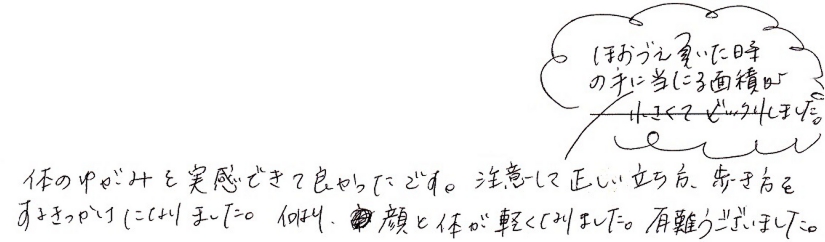 ほおづえ着いた時
の手に当たる面積が
小さくてビックリしました。
体のゆがみを実感できて良かったです。注意して正しい立ち方、歩き方を
するきっかけになりました。何より、顔と体が軽くなりました。有難うございました。